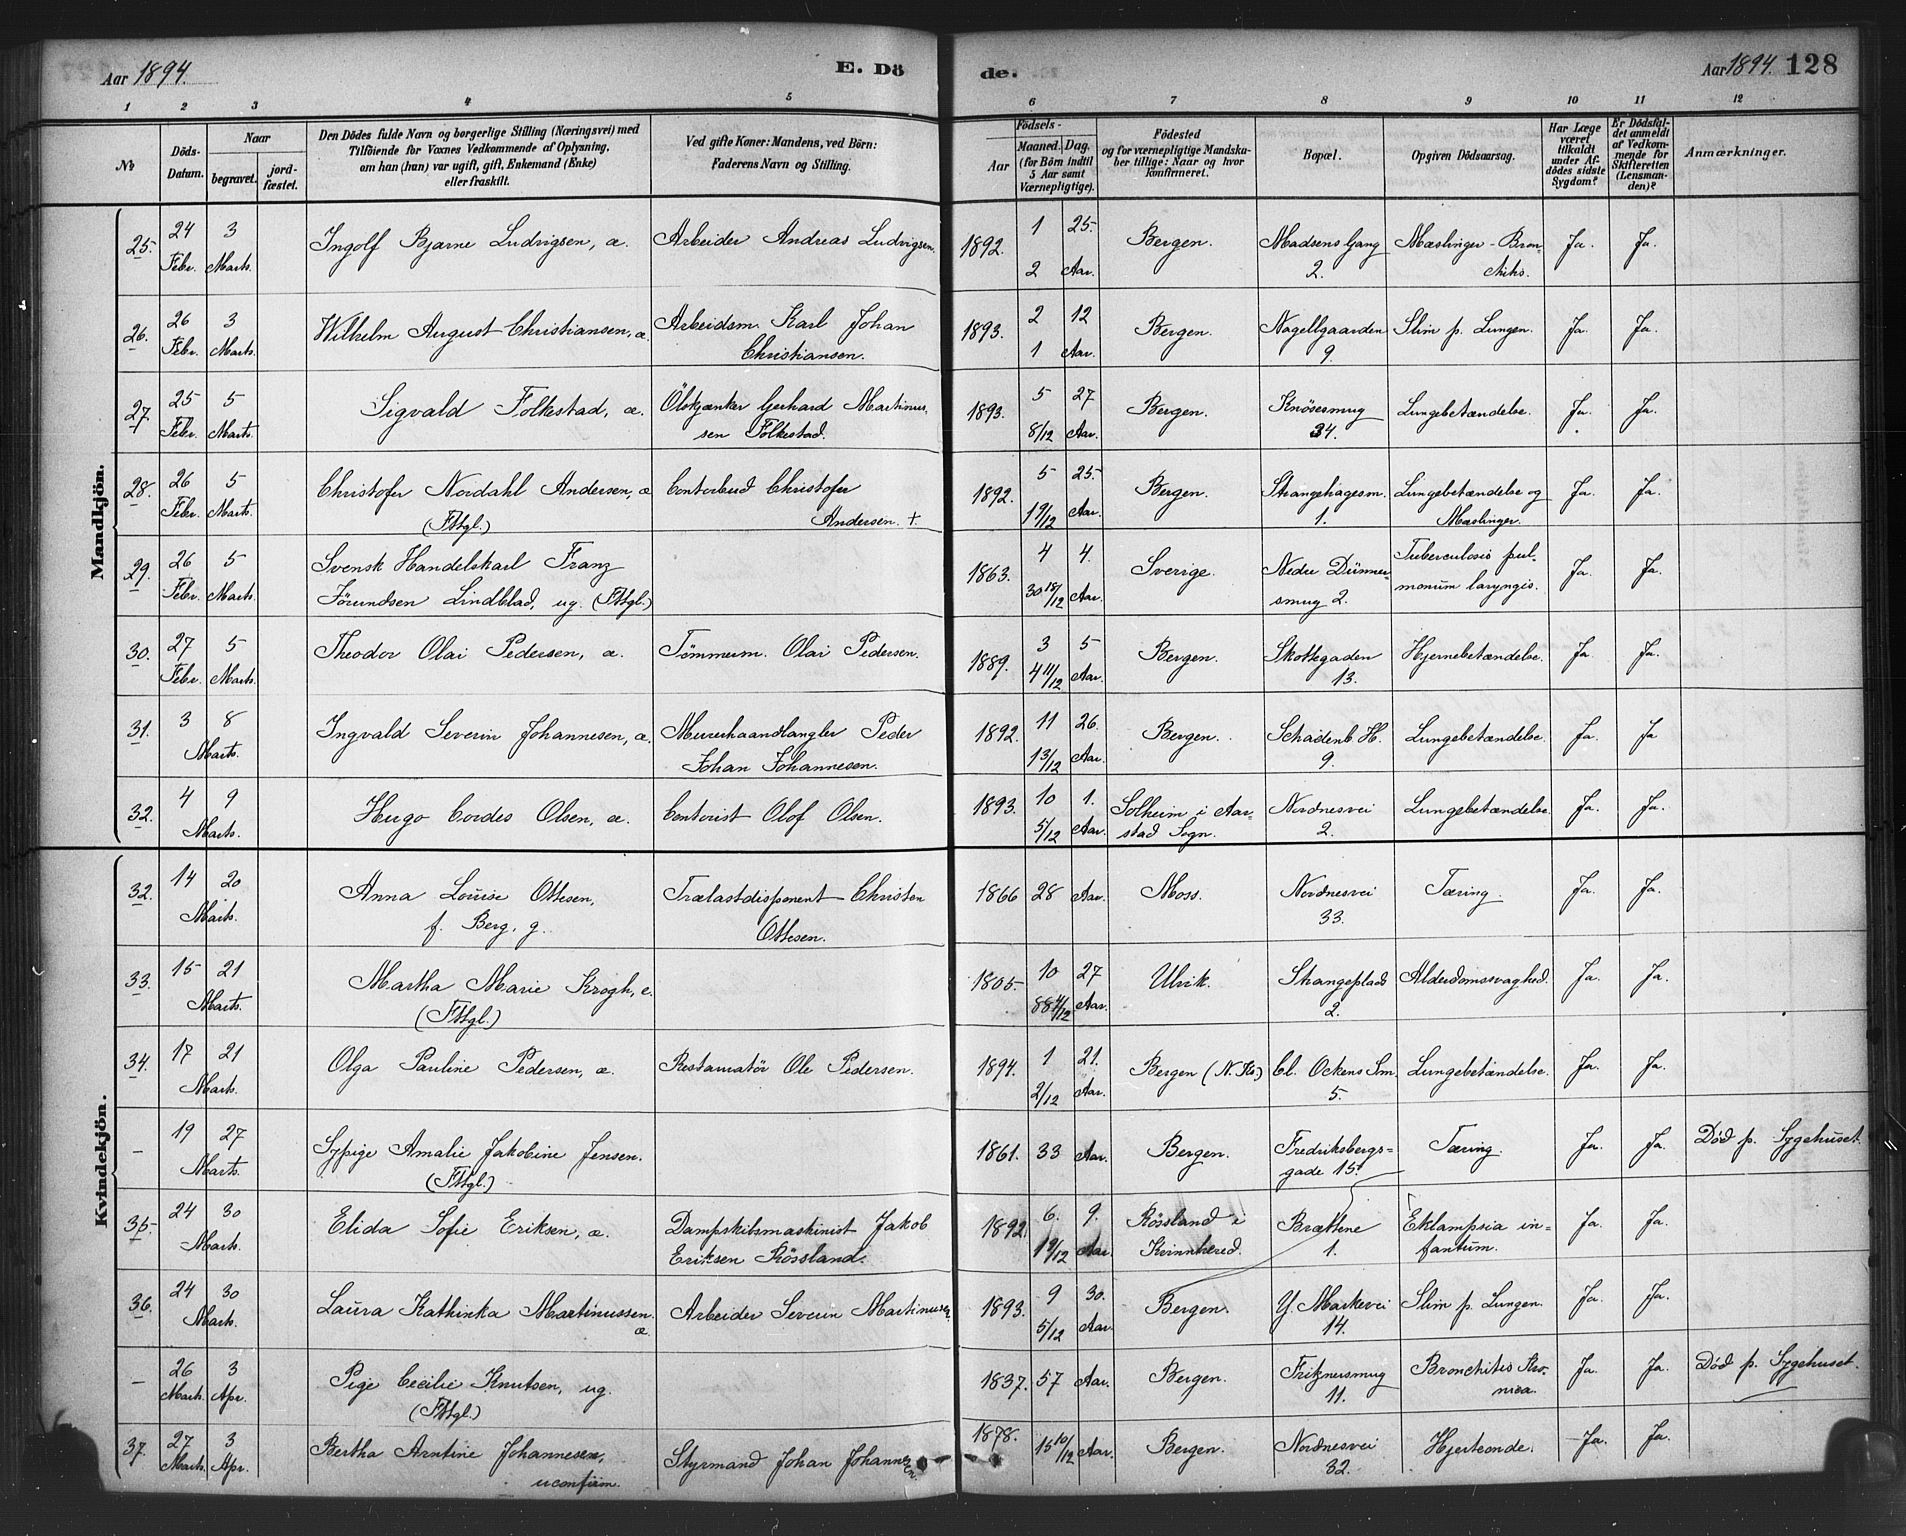 Aar 1894.
E. Dö
de.
Aar 1894. 128
1 2 3 4 5 6 7 8 9 10 11 12
№
Döds-Datum.
Naar
begravet.
jord-fæstet.
Den Dödes fulde Navn og borgerlige Stilling (Næringsvei) med
Tilföiende for Voxnes Vedkommende af Oplysning,
om han (hun) var ugift, gift, Enkemand (Enke)
eller fraskilt.
Ved gifte Koner: Mandens, ved Börn:
Faderens Navn og Stilling.
Aar
Födsels-
Maaned. Dag.
(for Börn indtil
5 Aar samt
Værnepligtige).
Födested
og for værnepligtige Mandska-
ber tillige: Naar og hvor
konfirmeret.
Bopæl.
Opgiven Dödsaarsag.
Har Læge
været
tilkaldt
under Af-
dödes sidste
Sygdom?
Er Dödsfal-
det anmeldt
af Vedkom-
mende for
Skifteretten
(Lensman-
den)?
Anmærkninger.
Mandkjön.
25. 24 Febr. 3 Marts. Ingolf Bjarne Ludvigsen, æ. Arbeider Andreas Ludvigsen. 1892. 1 25. 2 Aar. Bergen. Madsens Gang 2. Mæslinger-Bronchitis. Ja. Ja.
26. 26 Febr. 3 Marts. Wilhelm August Christiansen, æ. Arbeidsm. Karl Johan Christiansen. 1893. 2 12 1 Aar. Bergen. Nagellgaarden 9. Slim p. Lungen. Ja. Ja.
27. 25 Febr. 5 Marts. Sigvald Folkestad, æ. Ölskjænker Gerhard Martinus.sen Folkestad. 1893. 5 27 8/12 Aar. Bergen. Knösesmug 34. Lungebetændelse. Ja. Ja.
28. 26 Febr. 5 Marts. Christofer Nordahl Andersen, æ (Fttgl.) Contorbud Christofer Andersen. + 1892. 5 25. 1 9/12 Aar. Bergen. Strangehagesm. 1. Lungebetændelse og Mæslinger. Ja. Ja.
29. 26 Febr. 5 Marts. Svensk Handelskarl Franz Jörundsen Lindblad, ug. (Fttgl.) 1863. 4 4. 30 10/12 Aar. Sverige. Nedre Dünnersmug 2. Tuberculosis pulmonum laryngis. Ja. Ja.
30. 27 Febr. 5 Marts. Theodor Olai Pedersen, æ. Tömmerm. Olai Pedersen. 1889. 3 5 4 11/12 Aar. Bergen. Skottegaden 13. Hjernebetændelse. Ja Ja.
31. 3 8 Marts. Ingvald Severin Johannesen, æ. Murerhaandlangler Peder Johan Johannesen. 1892. 11 26. 1 3/12 Aar. Bergen. Schaidenb. H. 9. Lungebetændelse. Ja. Ja
32. 4 9 Marts. Hugo Cordes Olsen, æ. Contorist Olof Olsen. 1893. 10 1. 5/12 Aar. Solheim i Aarstad Sogn. Nordnesvei 2. Lungebetændelse Ja. Ja.
Kvindekjön.
32. 14 20 Marts. Anna Louise Ottesen, f. Berg, g. Trælastdisponent Christen Ottesen. 1866 28 Aar. Moss. Nordnesvei 33. Tæring. Ja. Ja.
33. 15 21 Marts. Martha Marie Krogh, e. (Fttgl.) 1805 10 27 88 4/12 Aar. Ulvik. Strangeplads 2. Alderdomssvaghed. Ja. Ja.
34. 17 21 Marts. Olga Pauline Pedersen, æ. Restauratör Ole Pedersen. 1894. 1 21. 2/12 Aar. Bergen (N. Kr.) Cl. Ockens Sm. 5. Lungebetændelse. Ja. Ja.
– 19 27 Marts. Sypige Amalie Jakobine Jensen. (Fttgl.) 1861. 33 Aar. Bergen. Fredriksbergsgade 15. Tæring. Ja. Ja. Död p. Sygehuset.
35. 24 30 Marts. Elida Sofie Eriksen, æ. Dampskibsmaskinist Jakob Eriksen Rössland. 1892. 6. 9. 1 9/12 Aar. Rössland i Kvinnherred. Brættene 1. Eklampsia infantum. Ja. Ja.
36. 24 30 Marts. Laura Kathinka Martinussen. æ. Arbeider Severin Martinusen. 1893. 9 30. 5/12 Aar. Bergen. Y. Markevei 14. Slim p. Lungen. Ja. Ja.
– 26 Marts. 3 Apr. Pige Cecilie Knutsen, ug. (Fttgl.) 1837. 57 Aar. Bergen. Friznersmug 11. Bronchitis kronica. Ja. Ja. Död p. Sygehuset.
37. 27 Marts. 3 Apr. Bertha Arntine Johannesen, uconfirm. Styrmand Johan Johannesen. 1878. 15 10/12 Aar. Bergen. Nordnesvei 32. Hjerteonde. Ja. Ja.